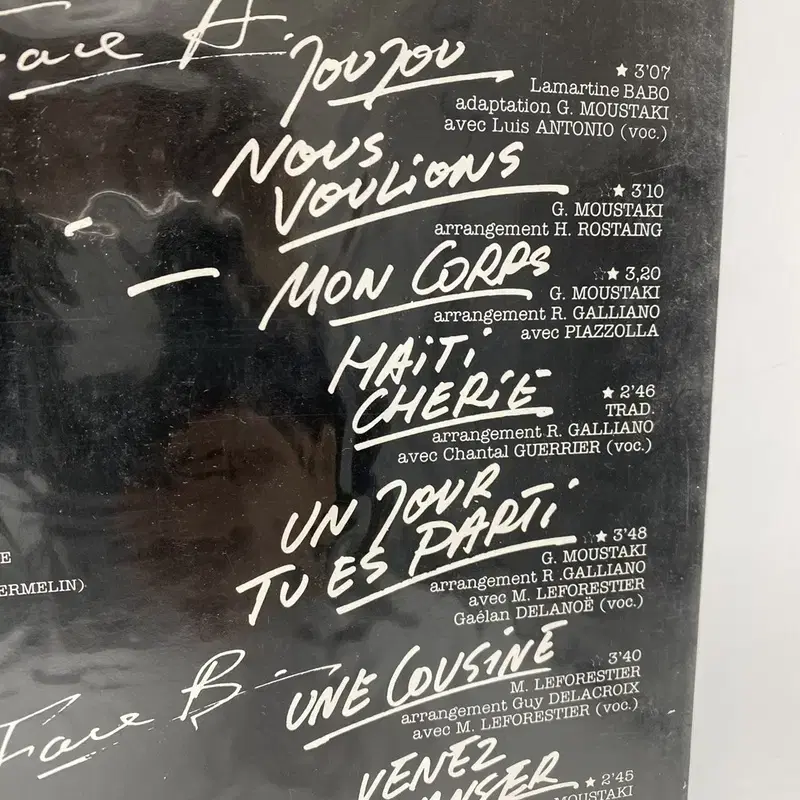 Face A.
JOUJOU
★ 3'07
Lamartine BABO
adaptation G. MOUSTAKI
avec Luis ANTONIO (voc.)
NOUS
VOULIONS
☆★ 3'10
G. MOUSTAKI
arrangement H. ROSTAING
MON CORPS
☆★ 3,20
G. MOUSTAKI
arrangement R. GALLIANO
avec PIAZZOLLA
HAÏTI
CHERIE
★ 2'46
TRAD.
arrangement R. GALLIANO
avec Chantal GUERRIER (voc.)
UN JOUR
TU ES PARTI
☆★ 3'48
G. MOUSTAKI
arrangement R .GALLIANO
avec M. LEFORESTIER
Gaélan DELANOË (voc.)
E
ERMELIN)
Face B
UNE COUSINE
☆ 3'40
M. LEFORESTIER
arrangement Guy DELACROIX
avec M. LEFORESTIER (voc.)
VENEZ
★ 2'45
MOUSTAKI